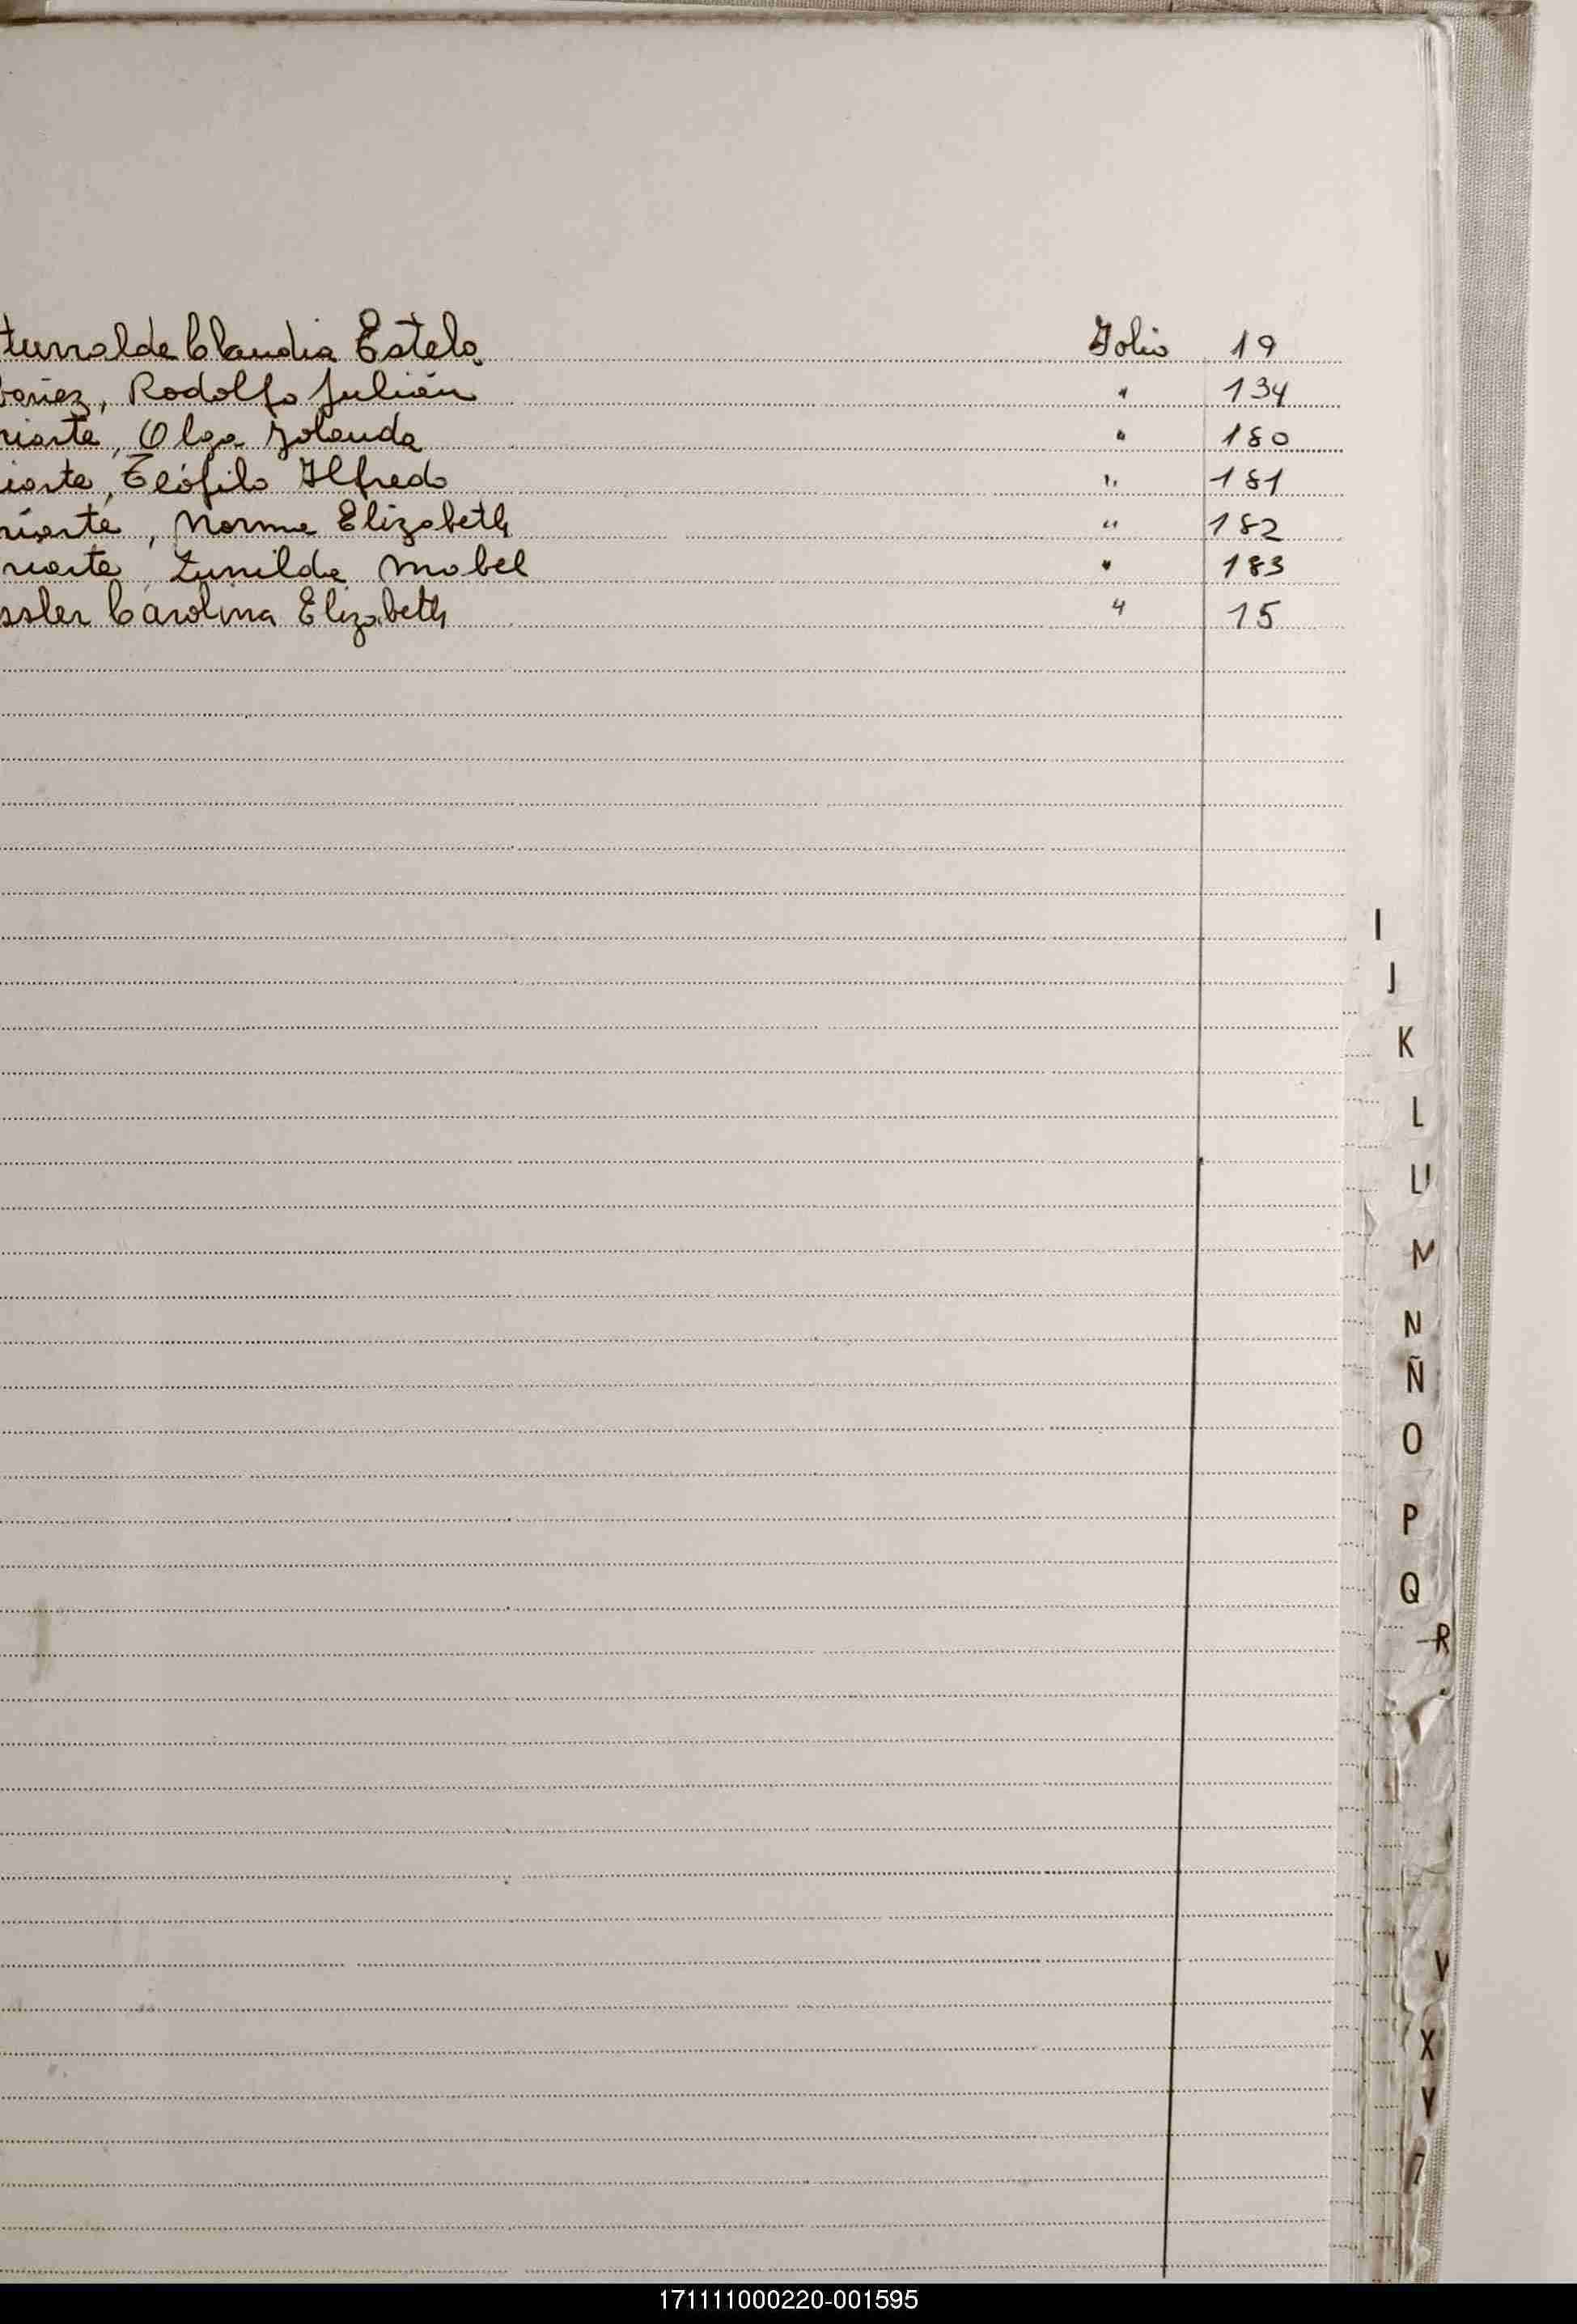 turralde Claudia Estela Folio 19
bañez, Rodolfo Julián " 134
riarte, Olga Yolanda " 180
iarte, Teófilo Alfredo " 181
riarte, Norma Elizabeth " 182
riarte Zunilda Mabel " 183
ssler Carolina Elizabeth " 15
I
J
K
L
M
N
Ñ
O
P
Q
R
V
X
Y
171111000220-001595